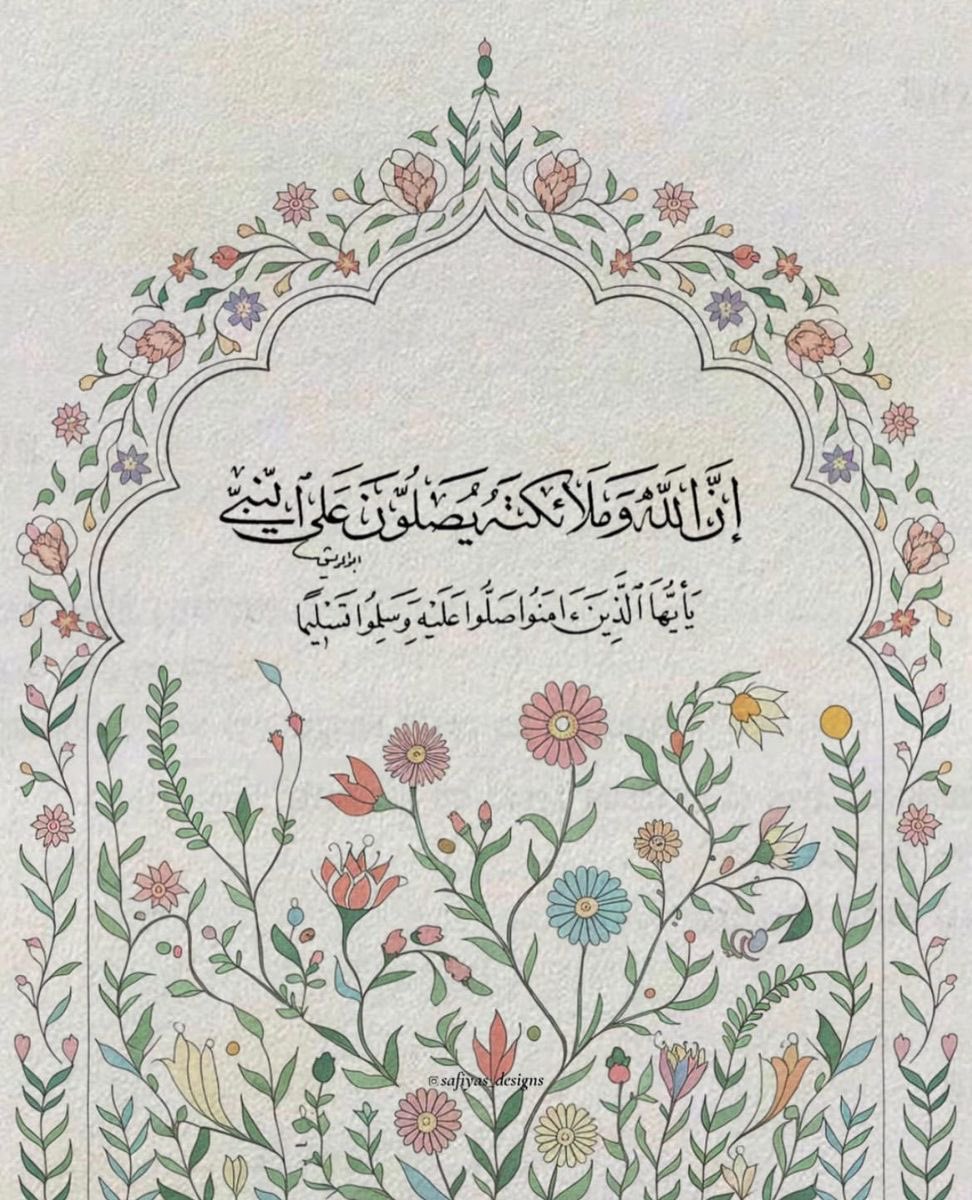 إِنَّ ٱللَّهَ وَمَلَٰٓئِكَتَهُۥ يُصَلُّونَ عَلَى ٱلنَّبِىِّ
يَٰٓأَيُّهَا ٱلَّذِينَ ءَامَنُوا۟ صَلُّوا۟ عَلَيْهِ وَسَلِّمُوا۟ تَسْلِيمًا
safiyas_designs